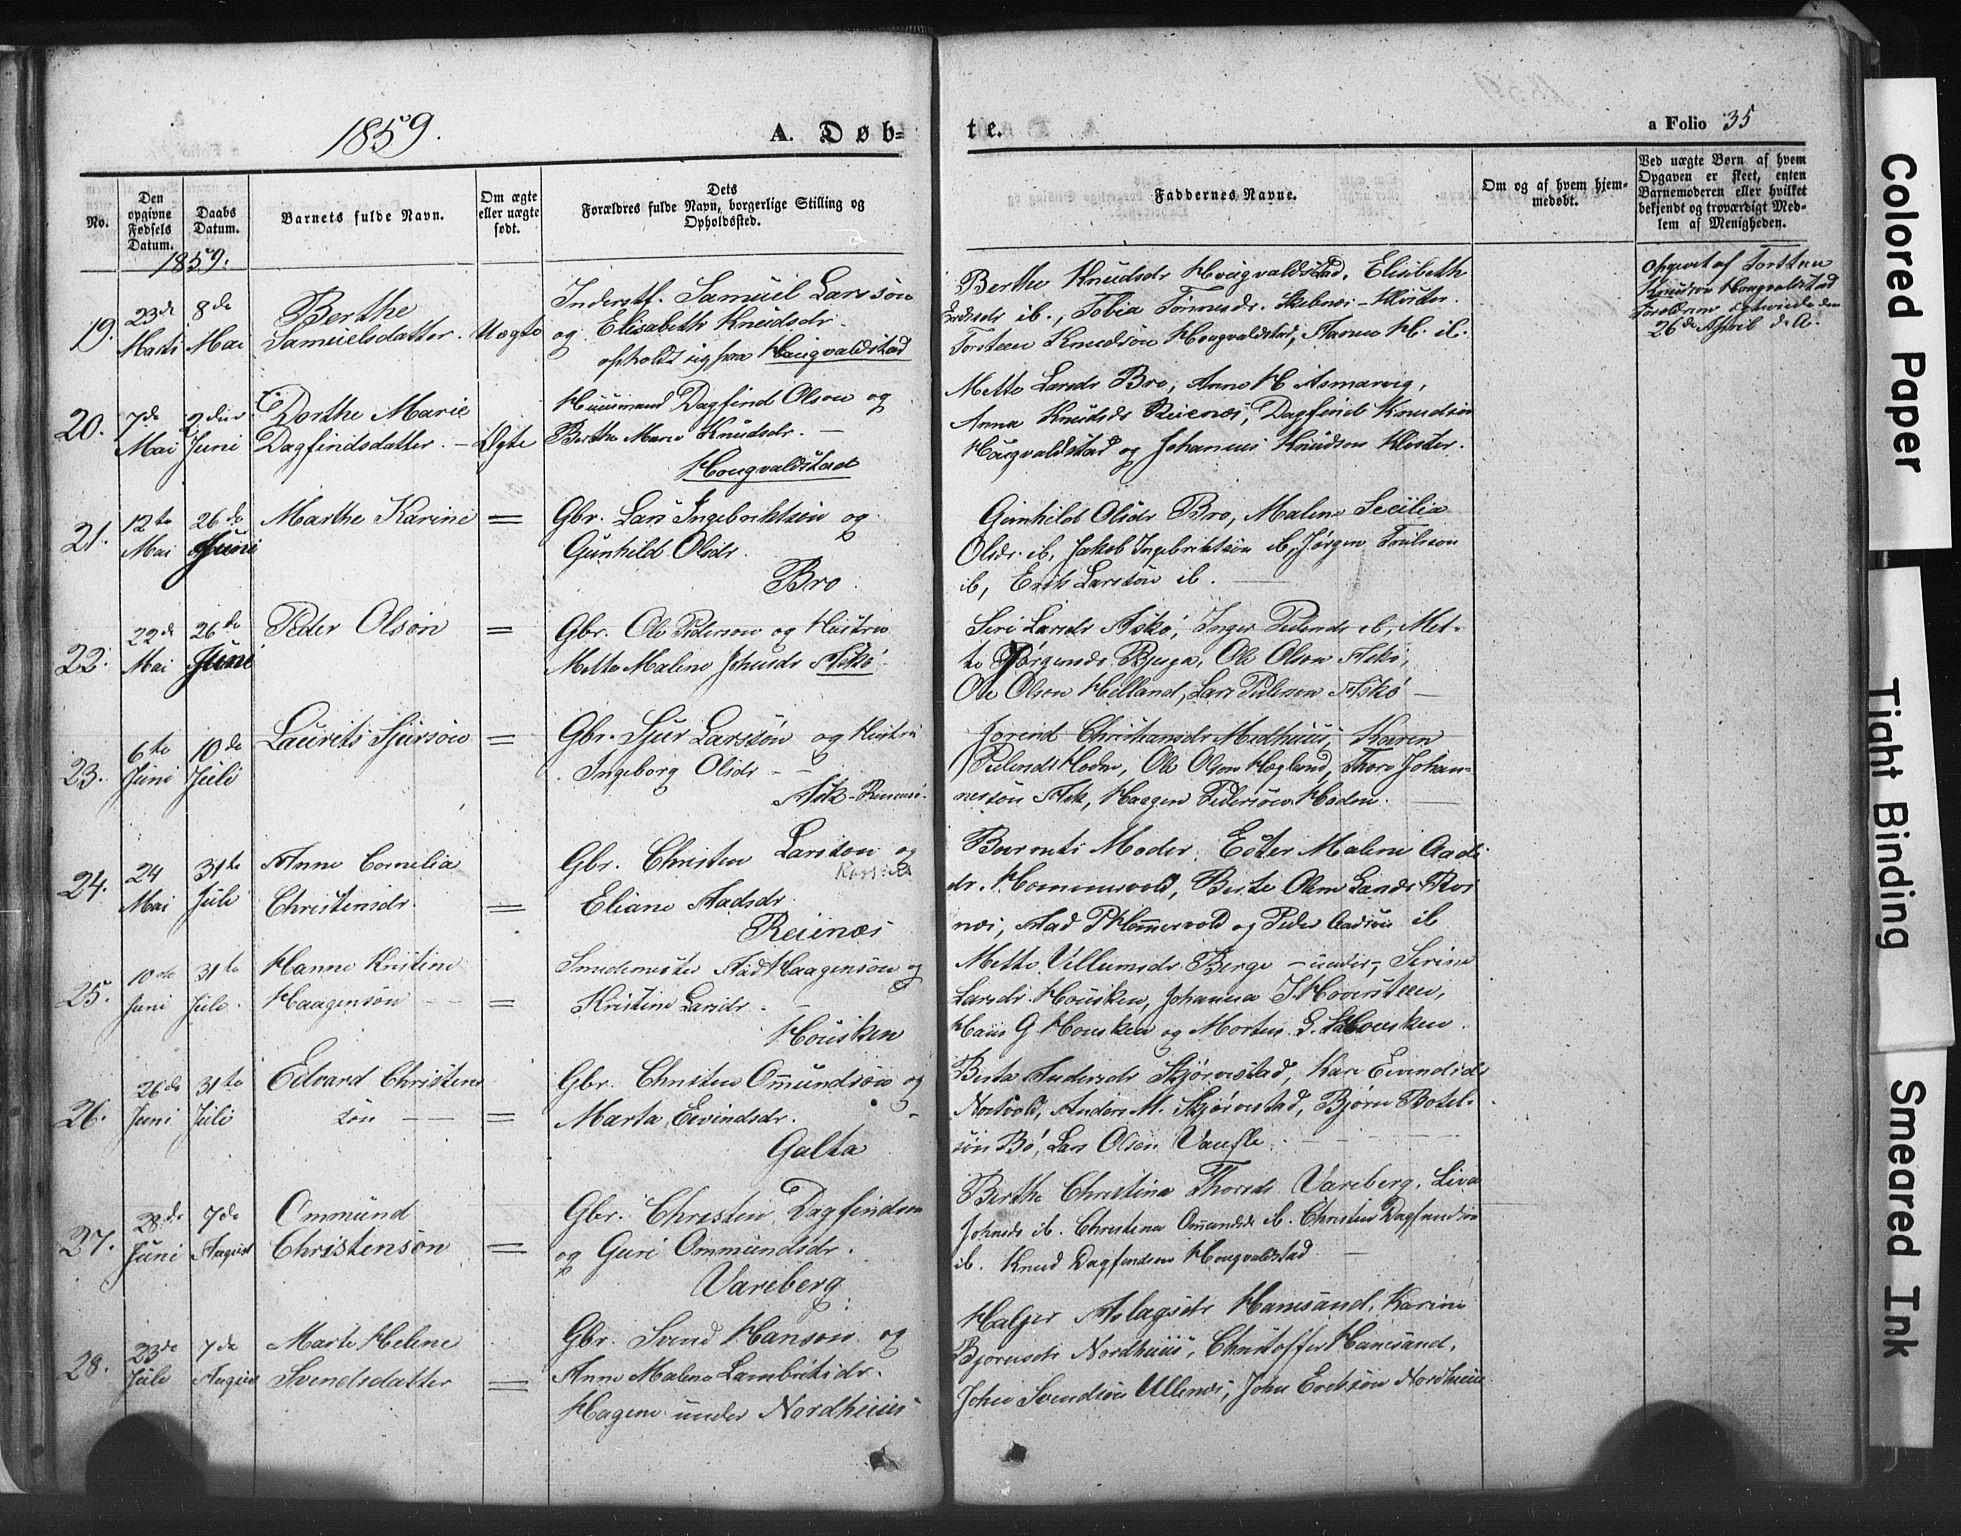 1859.
A. Døb-
te.
a Folio 35
No.
Den opgivne Fødsels Datum.
Daabs Datum.
Barnets fulde Navn.
Om ægte eller uægte født.
Dets Forældres fulde Navn, borgerlige Stilling og Opholdssted.
Faddernes Navne.
Om og af hvem hjemmedøbt.
Ved uægte Børn af hvem Opgaven er skeet, enten Barnemoderen eller hvilket bekjendt og troværdigt Medlem af Menigheden.
1859.
19.
23de Marts
8de Mai
Berthe
Samuelsdatter.
Uægte
Inderstf. Samuel Larssøn
og Elisabeth Knudsdr.
opholdt sig paa Hougvaldstad
Berthe Knudsdr Hougvaldstad, Elisabeth
ib., Tobia Tønnesdr. Kloster.
Torsteen Knudsøn Hougvaldstad, H. ib.
Opgivet af Torsten
Knudsen Hougvaldstad
Forældrene
26de April d. A.
20.
7de Mai
2den Juni
Dorthe Marie
Dagfindsdatter. -
Ægte
Huusmand Dagfind Olson og
Berthe Marie Knudsdr. -
Hougvaldstad
Mette Larsdr Bro, Anne H. Asmarvig,
Anna Knudsdr Reienæs, Dagfind Knudsøn
Hougvaldstad og Johannes Knudson Kloster.
21.
12te Mai
26de Juni
Marthe Karine
=
Gbr. Lars Ingebriktsøn og
Gunhild Olsdr.
Bro
Gunhild Olsdr Bro, Malene Secilia
Olsdr. ib, Jakob Ingebriktsøn ib, Jørgen
ib, Erik Larssøn ib.
22.
22de Mai
26de Juni
Peder Olsøn
=
Gbr. Ole Pederson og Hustru
Mette Malene Askø.
Siri Larsdr Askø, Inger ib, Met-
te Jørgensdr Ole Olson Askø,
Ole Olson Helland, Lars Pedersen Askø -
23.
6te Juni
10de Juli
Laurits Sjursøn
=
Gbr. Sjur Larssøn og Hustru
Ingeborg Olsdr -
Ask
Christiansdr Medhuus, Karen
Ole Olson Thore Johan-
nessøn Ask, Haagen Pedersøn Hodne.
24.
24 Mai
31te Juli
Anne Cornelia
Christensdr.
=
Gbr. Christen Larsson og
Eliane Aadsdr.
Reienæs
Barnets Moder, Malene Aads
dr. Hommersvold, Berte
næs, Aad Hommersvold og Peder Aadsøn ib
25.
10de Juni
31te Juli.
Hanne Kristine
Haagensøn - -
=
Smedemester Aad Haagensøn og
Kristine Larsdr. -
Housken
Mette Villumsdr Berge - under -, Serine
Larsdr Housken, Johanna
Hans G Housken og Morten Housken.
26.
26de Juni
31te Juli
Edvard Christen
søn - -
=
Gbr. Christen Ommundsøn og
Marta Eivindsdr. -
Galta
Berta Andersdr Skjørvestad, Kari Eivindsdr
Anders M. Skjørvestad, Bjørn Botel-
søn Bø, Lars Olsøn
27.
28de Juni
7de August
Ommund
Christensøn
=
Gbr. Christen Dagfindsøn
og Guri Ommundsdr.
Vareberg
Berthe Christina Thorsdr Vareberg, Liva
Johnsdr ib. Christina Ommundsdr ib. Christen Dagfindsøn
ib. Knud Dagfindsen Hougvaldstad -
28.
23de Juli
7de August
Marte Helene
Svendsdatter
=
Gbr. Svend Hanson og
Anne Malene Lambritsdr.
Hagene under Nordhuus
Aslagsdr Hanesand, Karine
Bjørnsdr Nordhuus, Christoffer Hanesand,
John Svendsøn Ullenæs, John Ericksøn Nordhuus
Colored Paper
Tight Binding
Smeared Ink